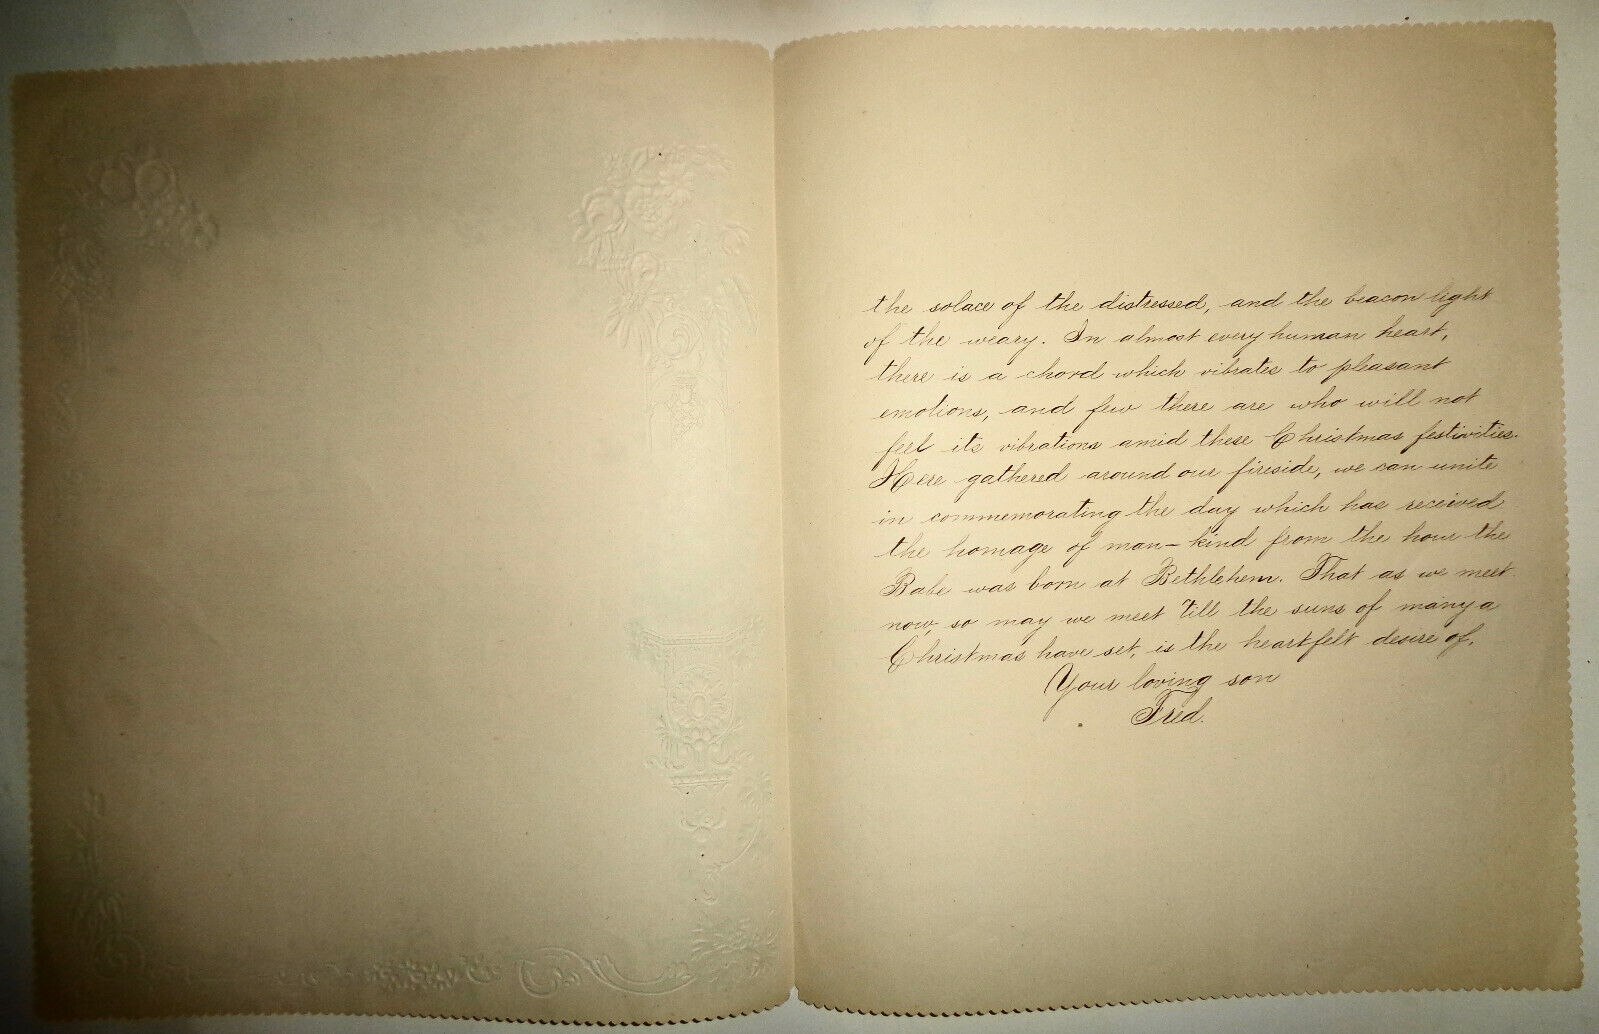 the solace of the distressed, and the beacon light
of the weary. In almost every human heart,
there is a chord which vibrates to pleasant
emotions, and few there are who will not
feel its vibrations amid these Christmas festivities.
Here gathered around our fireside, we can unite
in commemorating the day which has received
the homage of man-kind from the hour the
Babe was born at Bethlehem. That as we meet
now, so may we meet 'till the suns of many a
Christmas have set, is the heartfelt desire of,
Your loving son
Fred.